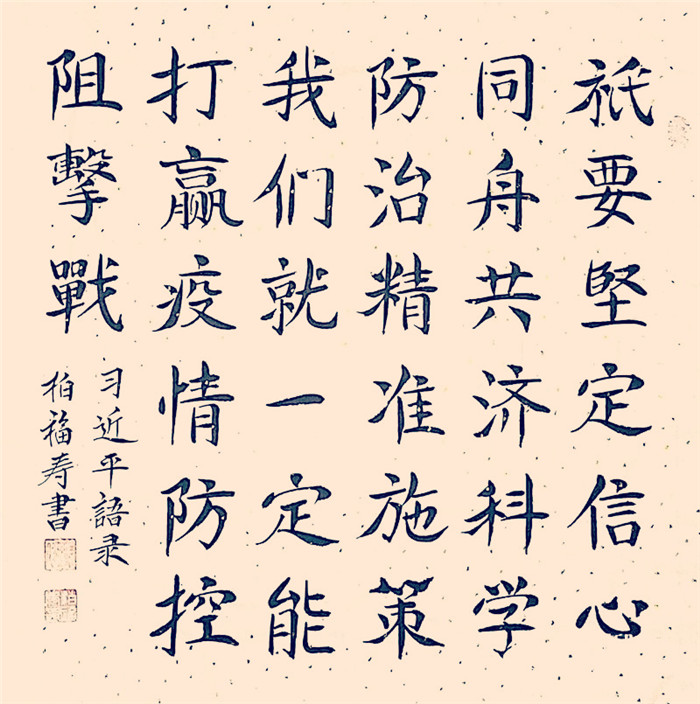 祇要堅定信心
同舟共济科学
防治精准施策
我们就一定能
打赢疫情防控
阻擊戰
习近平語录
柏福寿書